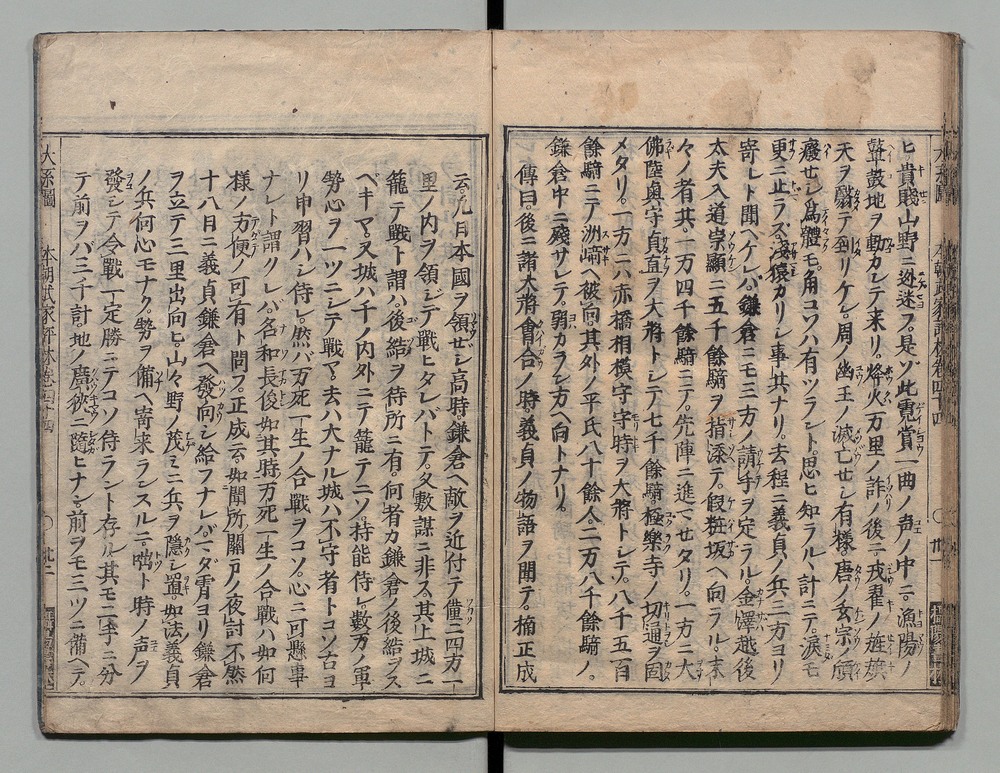 ヒ。貴賤山野ニ迯迷フ。是ソ此霓裳一曲ノ声ノ中ニ。漁陽ノ
鼙鼓地ヲ動カシテ来リ。烽火万里ノ詐ノ後ニ。戎翟ノ旌旗
天ヲ翳テ到リケン。周ノ幽王ノ滅亡セシ有樣。唐ノ玄宗ノ傾
癈セシ為體モ。角コソハ有ツラント。思ヒ知ラルヽ計ニテ。涙モ
更ニ止ラス。淺猿カリシ事共ナリ。去程ニ義貞ノ兵三方ヨリ
寄ルト聞ヘケレハ。鎌倉ニモ三方ノ請手ヲ定ラル。金澤越後
太夫入道崇顯ニ五千餘騎ヲ指添テ。假粧坂ヘ向ラル。末
々ノ者共一万四千餘騎ニテ。先陣ニ進マセタリ。一方ニ大
佛陸奥守貞直ヲ大將トシテ七千餘騎。極樂寺ノ切通ヲ固
メタリ。一方ニハ赤橋相模守守時ヲ大將トシテ。八千五百
餘騎ニテ洲崎ヘ被向。其外ノ平氏八十餘人。二万八千餘騎ハ。
鎌倉中ニ殘サレテ。弱カラン方ヘ向トナリ。
傳曰。後ニ諸大將會合ノ時。義貞ノ物語ヲ聞テ。楠正成
云。凡日本國ヲ領セシ高時。鎌倉ヘ敵ヲ近付テ僅ニ四方一
里ノ内ヲ領シテ。戰ヒタレバトテ。夕敷謀ニ非ス。其上城ニ
籠テ戰ト謂ハ。後結ヲ待所ニ有。何者カ鎌倉ノ後結ヲス
ベキマ。又城ハ千ノ内外ニテ籠テニソ。持能侍レ。數万ノ軍
勢心ヲ一ツニシテ戰マ。去ハ大ナル城ハ不守者トコソ。古ヨ
リ申習ハシ侍レ。然バ万死一生ノ合戰ヲコソ。心ニ可懸事
ナレト謂クレバ。名和長後。如其時万死一生ノ合戰ハ。如何
樣ノ方便ノ可有ト問フ。正成云。如聞所關戸ノ夜討不然
十八日ニ義貞鎌倉ヘ發向シ給フナレバ。マダ霄ヨリ鎌倉
ヲ立テ。三里出向ヒ。山々野ノ茂ミニ兵ヲ隱シ置。如法義貞
ノ兵何心モナク。勢ヲ備ヘ寄来ランスルニ。咄ト時ノ声ヲ
發シテ。今戰一定勝ニテコソ侍ラント存ル。其モ二季ニ分
テ。前ヲバ三千計。地ノ廣狹ニ隨ヒナン。前ヲモ三ツニ備ヘテ。
本朝武家評林卷四十四